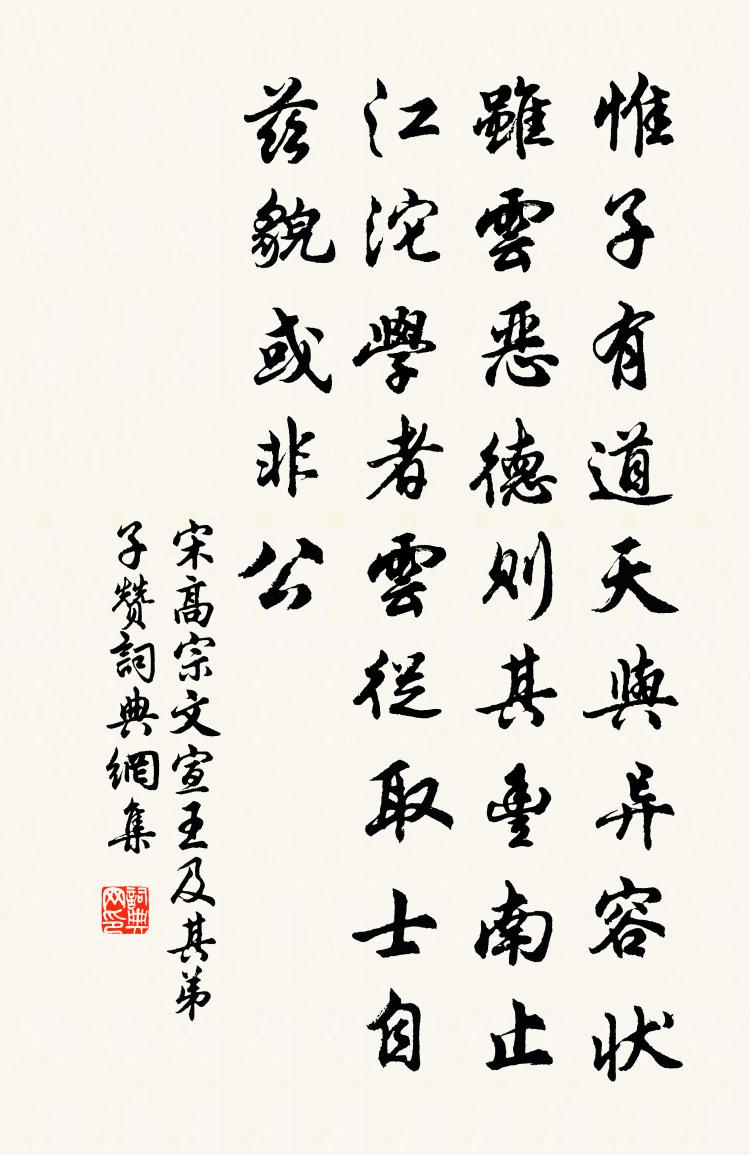 惟子有道天與异容状
雖雲惡德則其豐南止
江沱學者雲從取士自
茲貌或非公
宋高宗文宣王及其弟
子贊詞典網集
詞典
网印